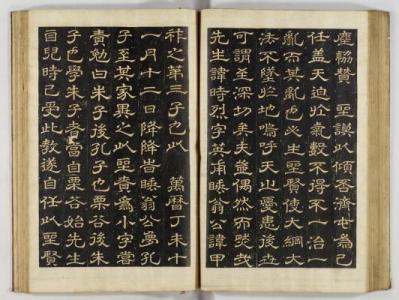 塵脇贊 聖謨以傾否濟屯爲己
任盖天迫於氣數不得不一治一
亂而其亂也必生聖賢使大綱大
法不墜於地嗚呼天之憂患後世
可謂至深切矣夫豈偶然而哉
先生諱時烈字英甫睡翁公諱甲
祚之第三子也以 萬曆丁未十
一月十二日降降旹睡翁公夢孔
子至其家異之以聖賚爲小字嘗
責勉曰朱子後孔子也栗谷後朱
子也學朱子者當自栗谷始先生
自兒時已受此敎遂自任以聖賢